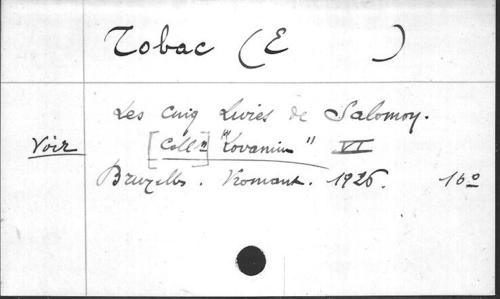 Tobac (E )
Les Cinq Livres de Salomon.
Voir [Coll⁰ⁿ] "Lovanium" VI
Bruxelles. Vromant. 1926. 16º